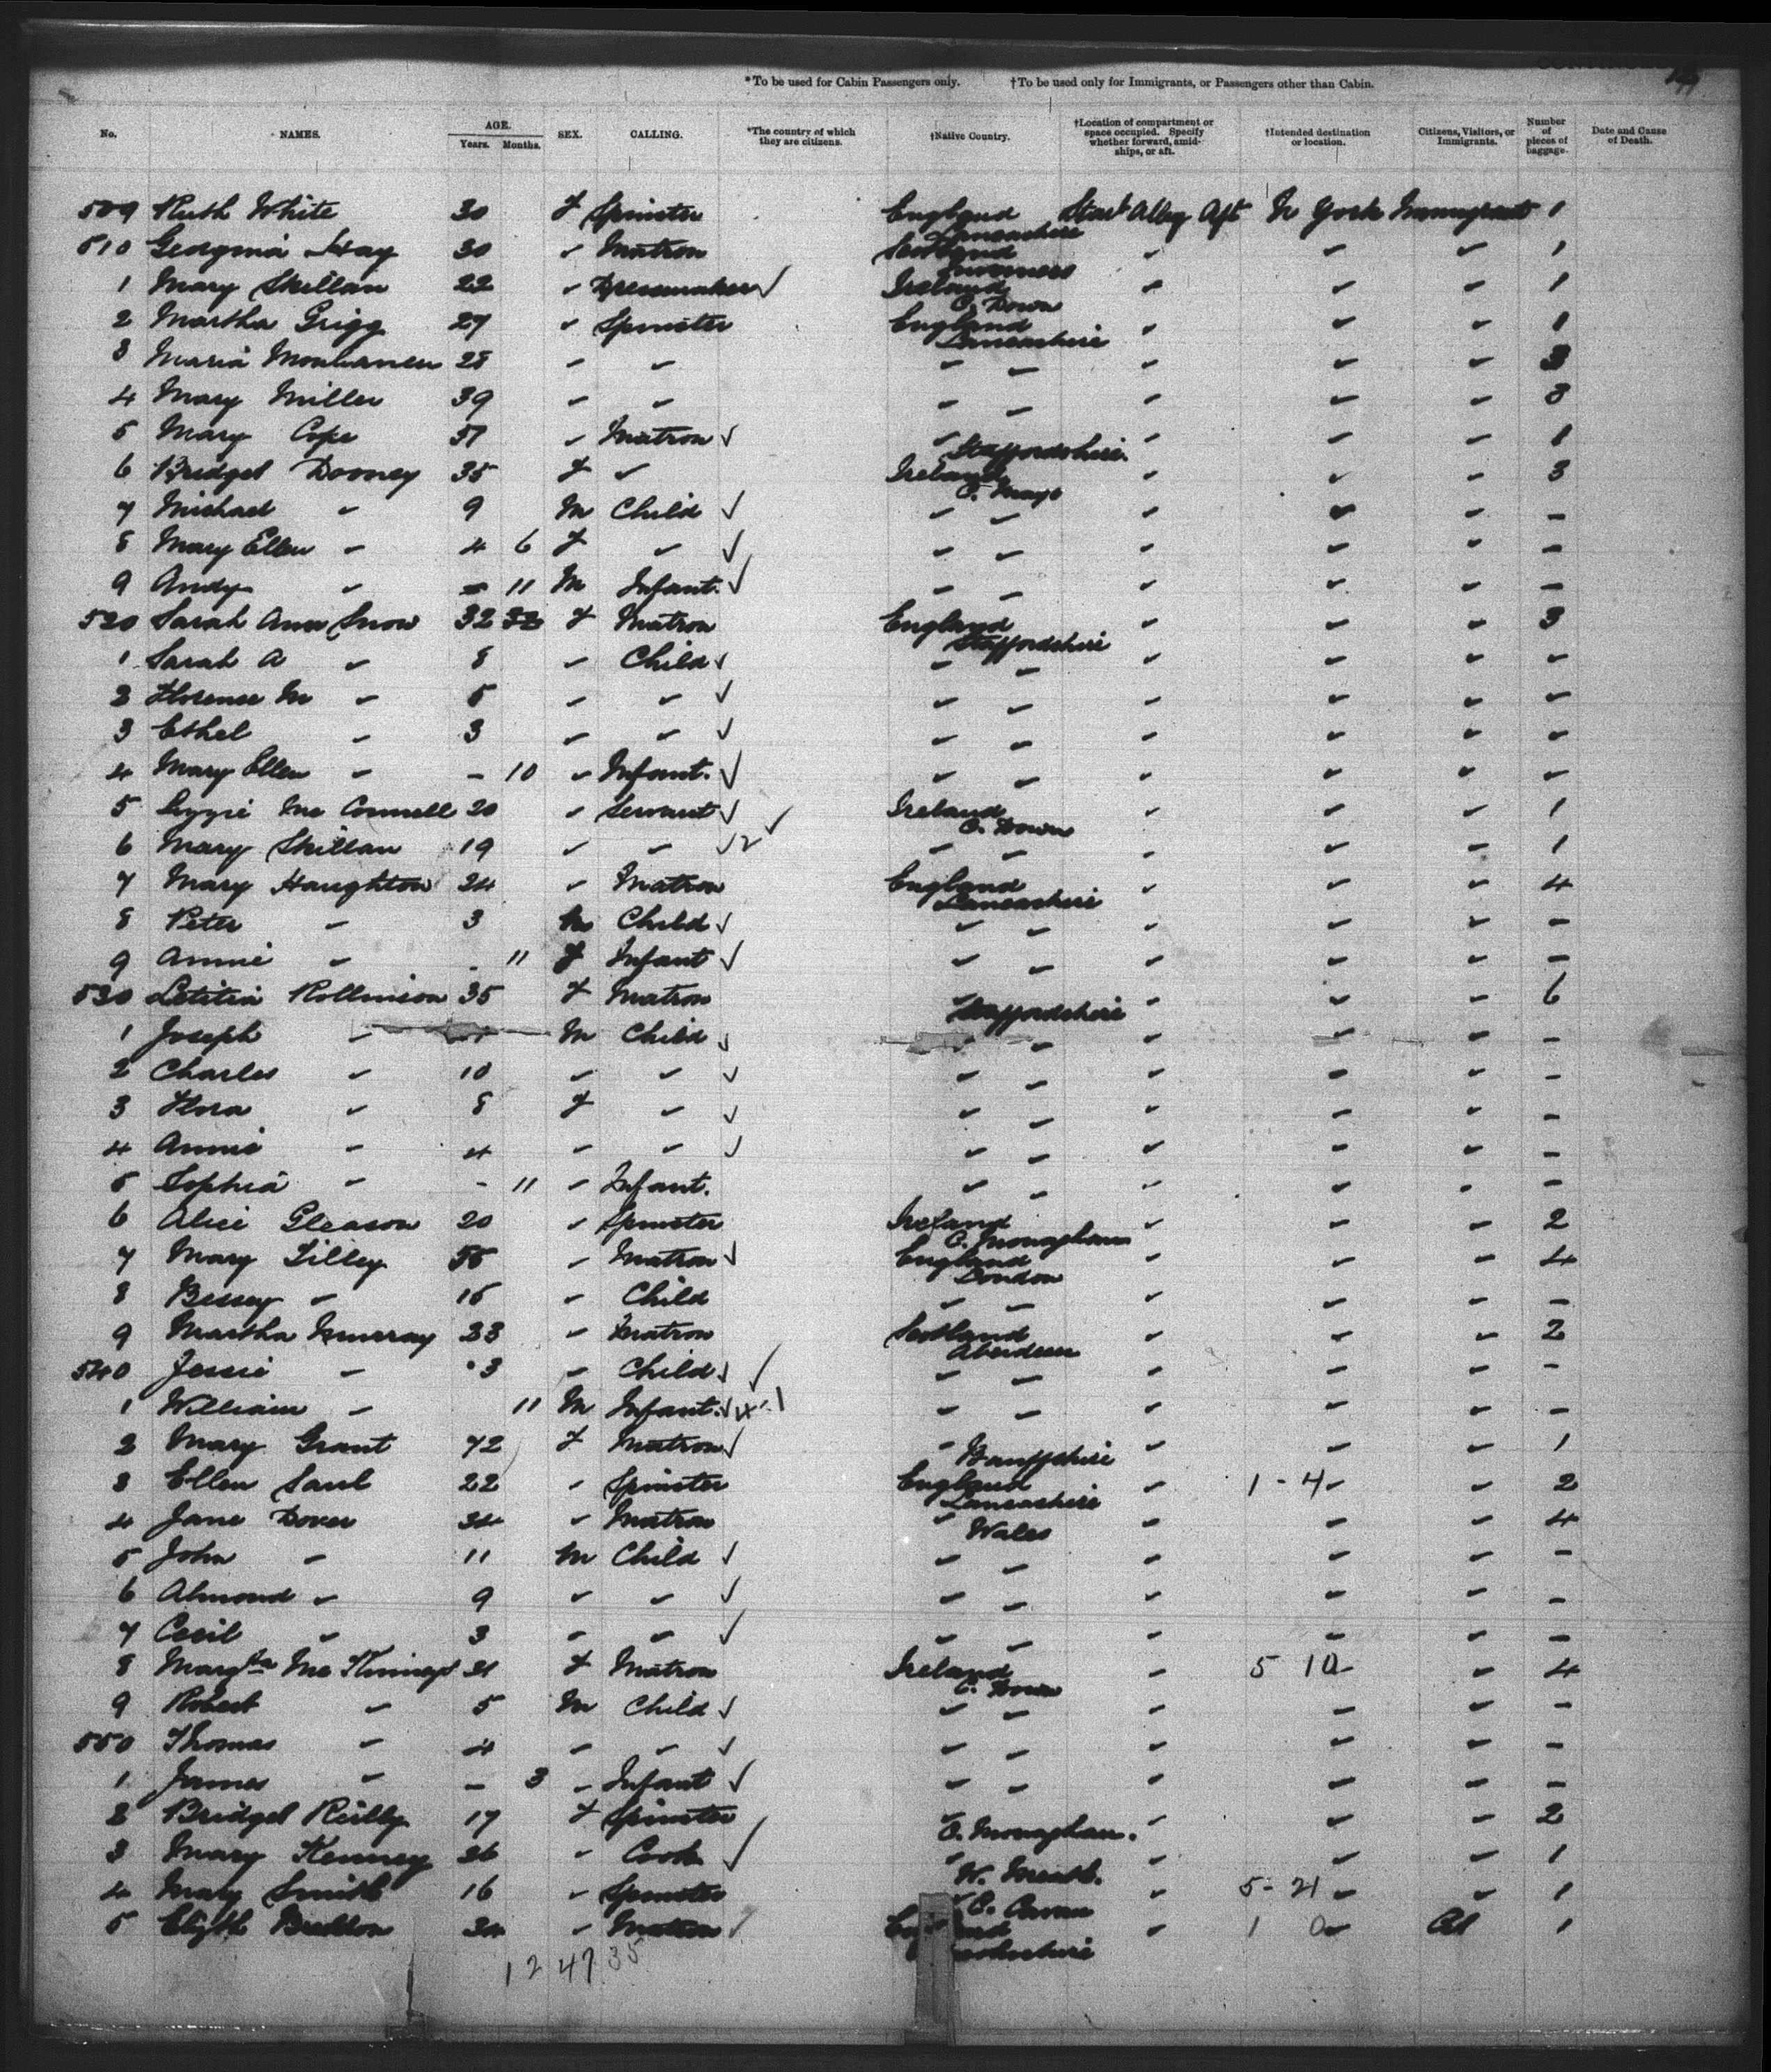 *To be used for Cabin Passengers only. †To be used only for Immigrants, or Passengers other than Cabin.
No. NAMES. AGE. Years. Months. SEX. CALLING. *The country of which they are citizens. †Native Country. †Location of compartment or space occupied. Specify whether forward, amidships, or aft. †Intended destination or location. Citizens, Visitors, or Immigrants. Number of pieces of baggage. Date and Cause of Death.
509 Ruth White 30 F Spinster England Lancashire Star'd Alley Aft N York Immigrants 1
510 Georgina Hay 30 " Matron Scotland Inverness " " " 1
1 Mary Skillan 22 " Dressmaker ✓ Ireland C. Down " " " 1
2 Martha Grigg 27 " Spinster England Lancashire " " " 1
3 Maria 28 " " " " " " " 3
4 Mary Miller 39 " " " " " " " 3
5 Mary Cope 57 " Matron ✓ " Staffordshire. " " " 1
6 Bridget Dooney 35 F " Ireland C. Mayo " " " 3
7 Michael " 9 M Child ✓ " " " " " -
8 Mary Ellen " 4 6 F " ✓ " " " " " -
9 Andy " - 11 M Infant. ✓ " " " " " -
520 Sarah Ann Snow 32 F Matron England Staffordshire " " " 3
1 Sarah A " 8 " Child ✓ " " " " " "
2 Florence M " 5 " " ✓ " " " " " "
3 Ethel " 3 " " ✓ " " " " " "
4 Mary Ellen " - 10 " Infant. ✓ " " " " " "
5 Lizzie Mc Connell 20 " Servant ✓ Ireland C. Down " " " 1
6 Mary Skillan 19 " " ✓ 2 ✓ " " " " " 1
7 Mary Haughton 24 " Matron England Lancashire " " " 4
8 Peter " 3 M Child ✓ " " " " " -
9 Annie " - 11 F Infant ✓ " " " " " -
530 Letitia Rollinson 35 F Matron " Staffordshire " " " 6
1 Joseph " M Child ✓ " " " " " -
2 Charles " 10 " " ✓ " " " " " -
3 Flora " 8 F " ✓ " " " " " -
4 Annie " 4 " " ✓ " " " " " -
5 Sophia " - 11 " Infant. " " " " " -
6 Alice Gleason 20 " Spinster Ireland C. Monaghan " " " 2
7 Mary Tilley 55 " Matron ✓ England London " " " 4
8 Bessey " 15 " Child " " " " " -
9 Martha Murray 33 " Matron Scotland Aberdeen " " " 2
540 Jessie " 3 " Child ✓ ✓ " " " " " -
1 William " 11 M Infant. ✓ " " " " " -
2 Mary Grant 72 F Matron ✓ " Banffshire " " " 1
3 Ellen Saul 22 " Spinster England Lancashire " 1 - 4 " " 2
4 Jane Dover 34 " Matron " Wales " " " 4
5 John " 11 M Child ✓ " " " " " -
6 Almond " 9 " " ✓ " " " " " -
7 Cecil " 3 " " ✓ " " " " " -
8 Margta Mc 31 F Matron Ireland C. Down " 5 10 " " 4
9 Robert " 5 M Child ✓ " " " " " -
550 Thomas " 4 " " ✓ " " " " " -
1 James " - 3 " Infant ✓ " " " " " -
2 Bridget Reilly 17 F Spinster " C. Monaghan. " " " 2
3 Mary Kenney 26 " Cook ✓ " W. Meath. " " " 1
4 Mary Smith 16 " Spinster " C. Cavan " 5 - 21 " " 1
5 34 " Matron " 1 0 " 1
12 47 35